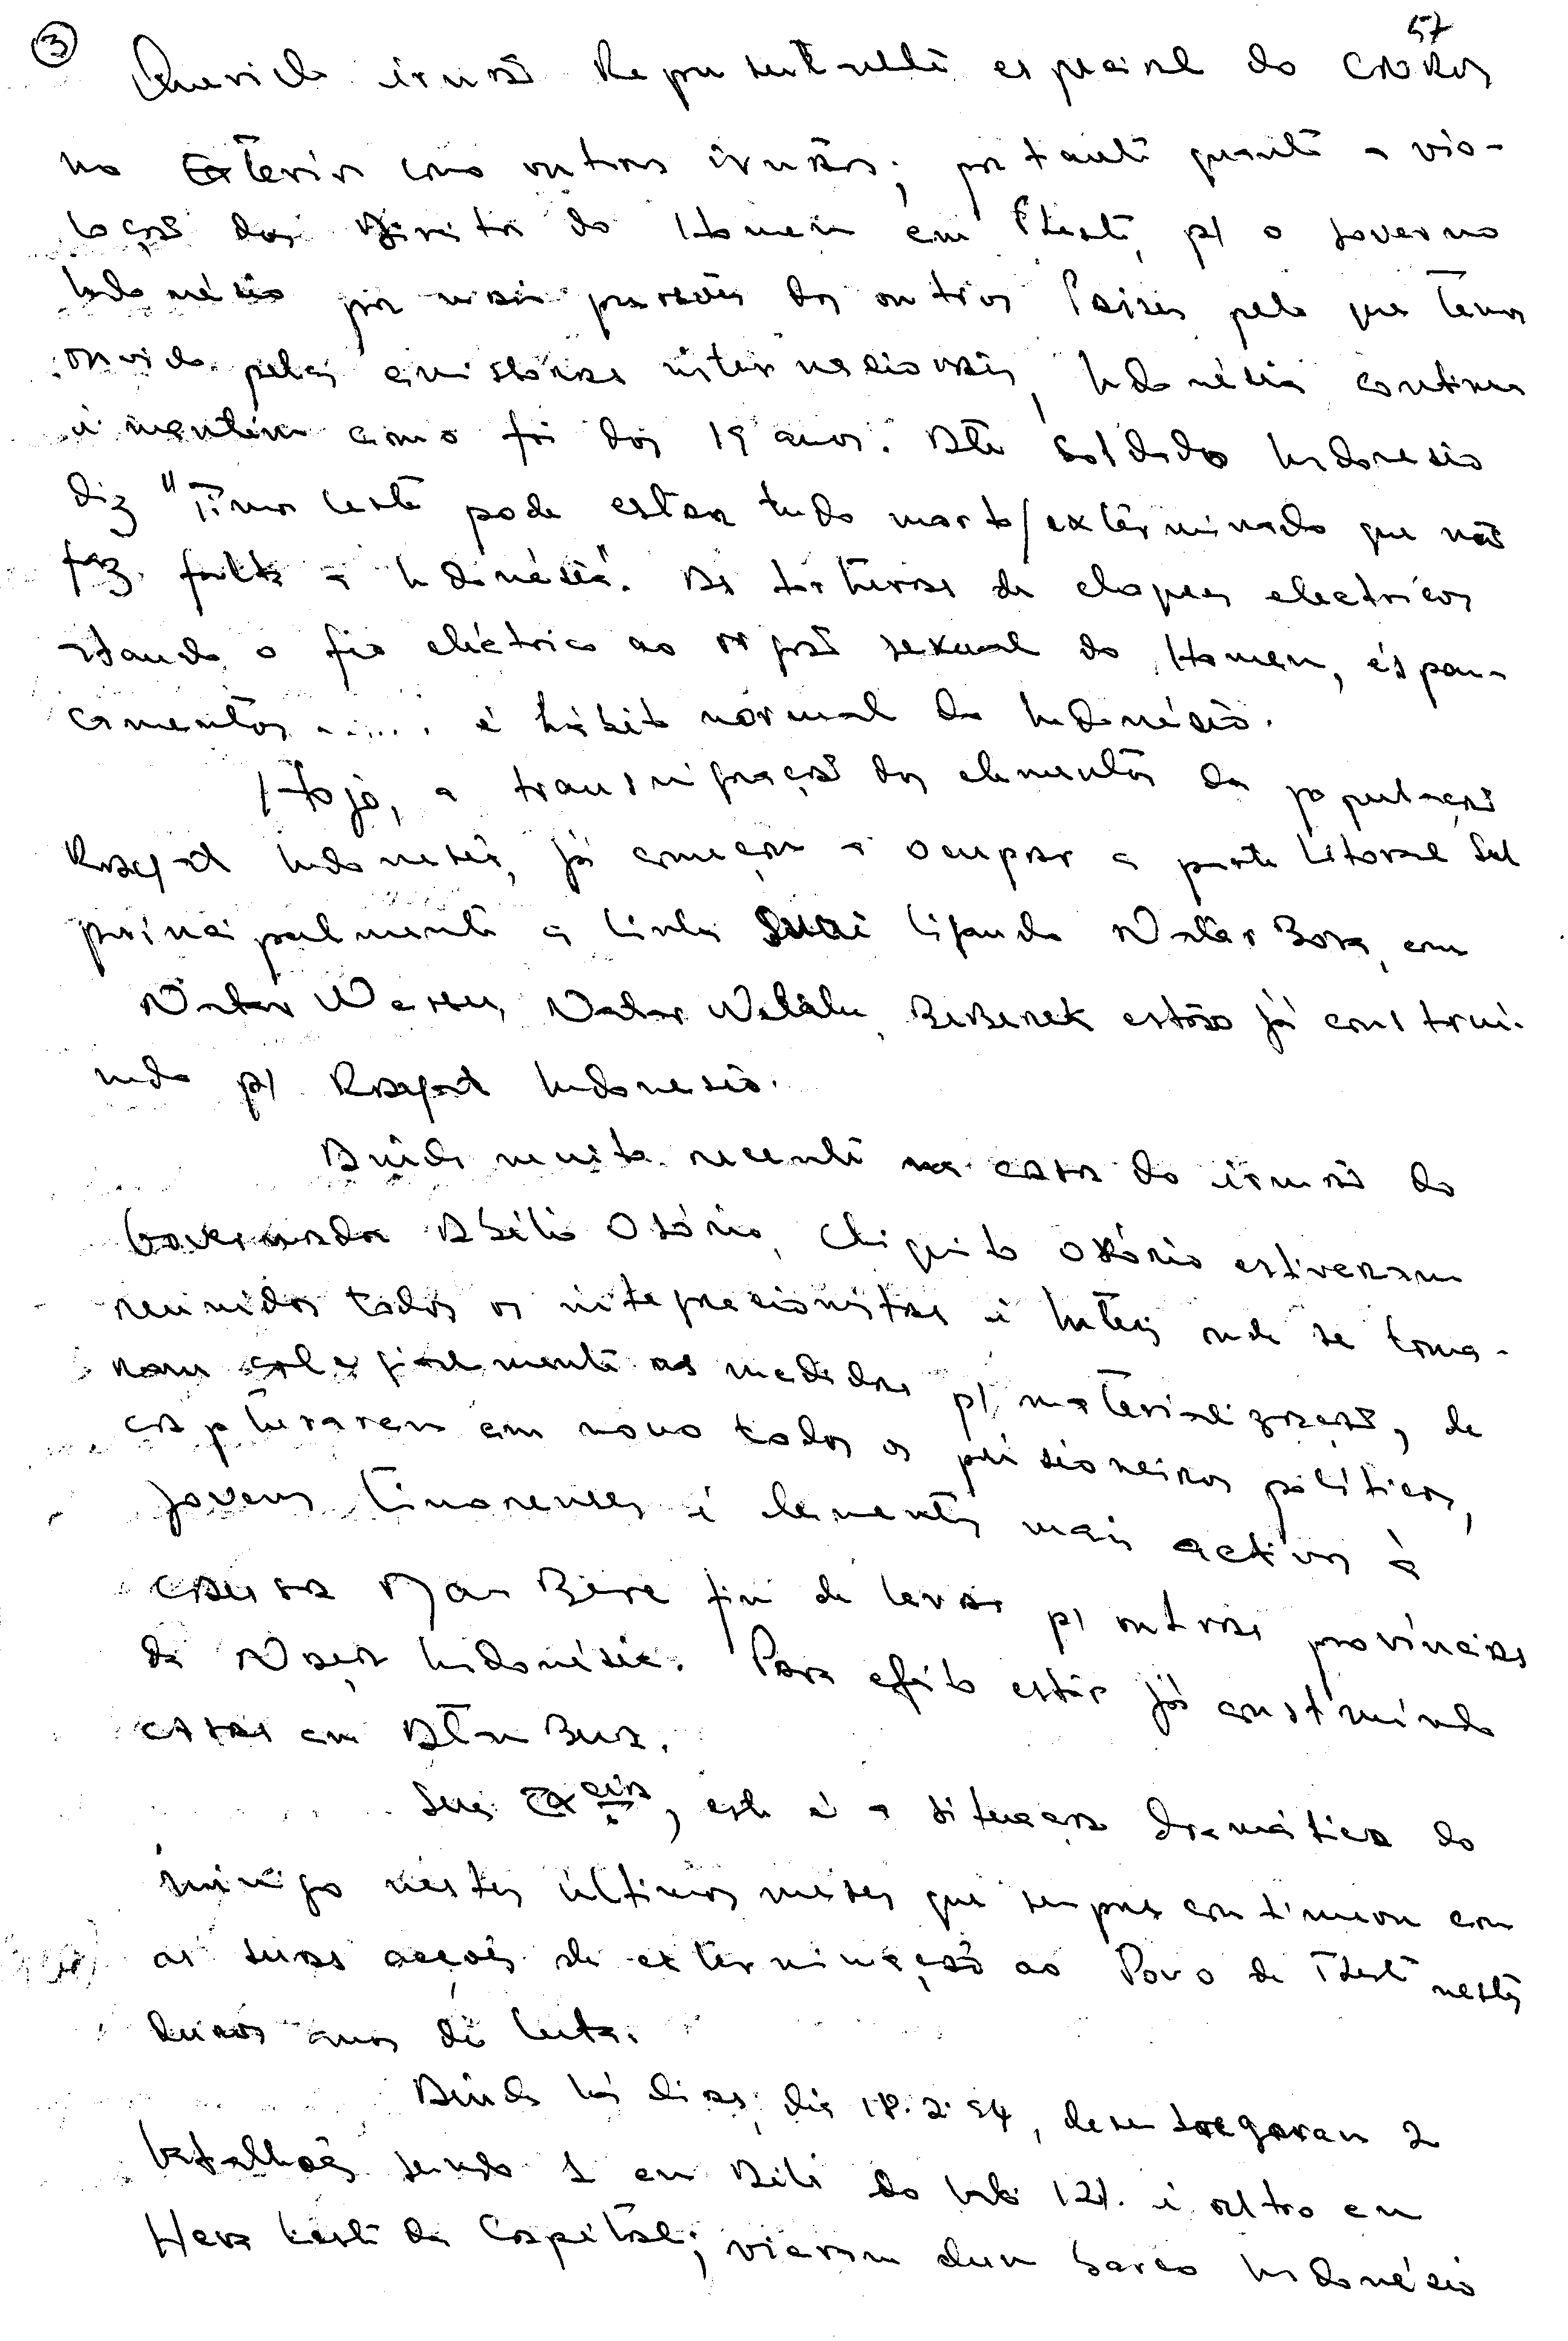 ③ 57
Querido irmão Representante especial do CNRM
no Exterior como outros irmãos; portanto quanto a vio-
lação dos Direitos do Homem em Tleste, p/ o governo
Indonésio por mais pressões dos outros Paises pelo que temos
ouvido pelas emissoras internacionais, Indonésia continua
a mantém como foi dos 19 anos. Até soldado Indonesio
diz "Timor Leste pode estar tudo morto/exterminado que não
faz falta a Indonésia". As torturas de choques electricos
atando o fio eléctrico ao orgão sexual do Homem, espan-
camentos ...... é hábito normal da Indonésia.
Hoje, a transmigração dos elementos da população
Raayat Indonesia, já começam a ocupar a parte litoral Sul
principalmente a linha Suai ligando Natar Bora, em
Natar We Natar estão já construi-
ndo p/ Raayat Indonesia.
Ainda muito recente na casa do irmão do
Governador Abílio Osório, Chiquito Osório estiveram
reunidos todos os integracionistas e Inteis onde se toma-
ram as medidas p/ materialização, de
capturarem em novo todos os prisioneiros políticos,
jovens timorenses e elementos mais activos à
causa MauBere fim de levar p/ outras províncias
da Nação Indonésia. Para efeito estar já construindo
casas em AtamBua.
Sua Excia, este é a situação dramática do
inimigo nestes últimos meses que sempre continuou com
as suas acções de exterminação ao Povo de Tleste nestes
duros anos de luta.
Ainda há dias, dia 18.2.94, desembarcaram 2
batalhões sendo 1 em Dili do 121. e outro em
Hera Leste da Capital; vieram dum barco Indonésio